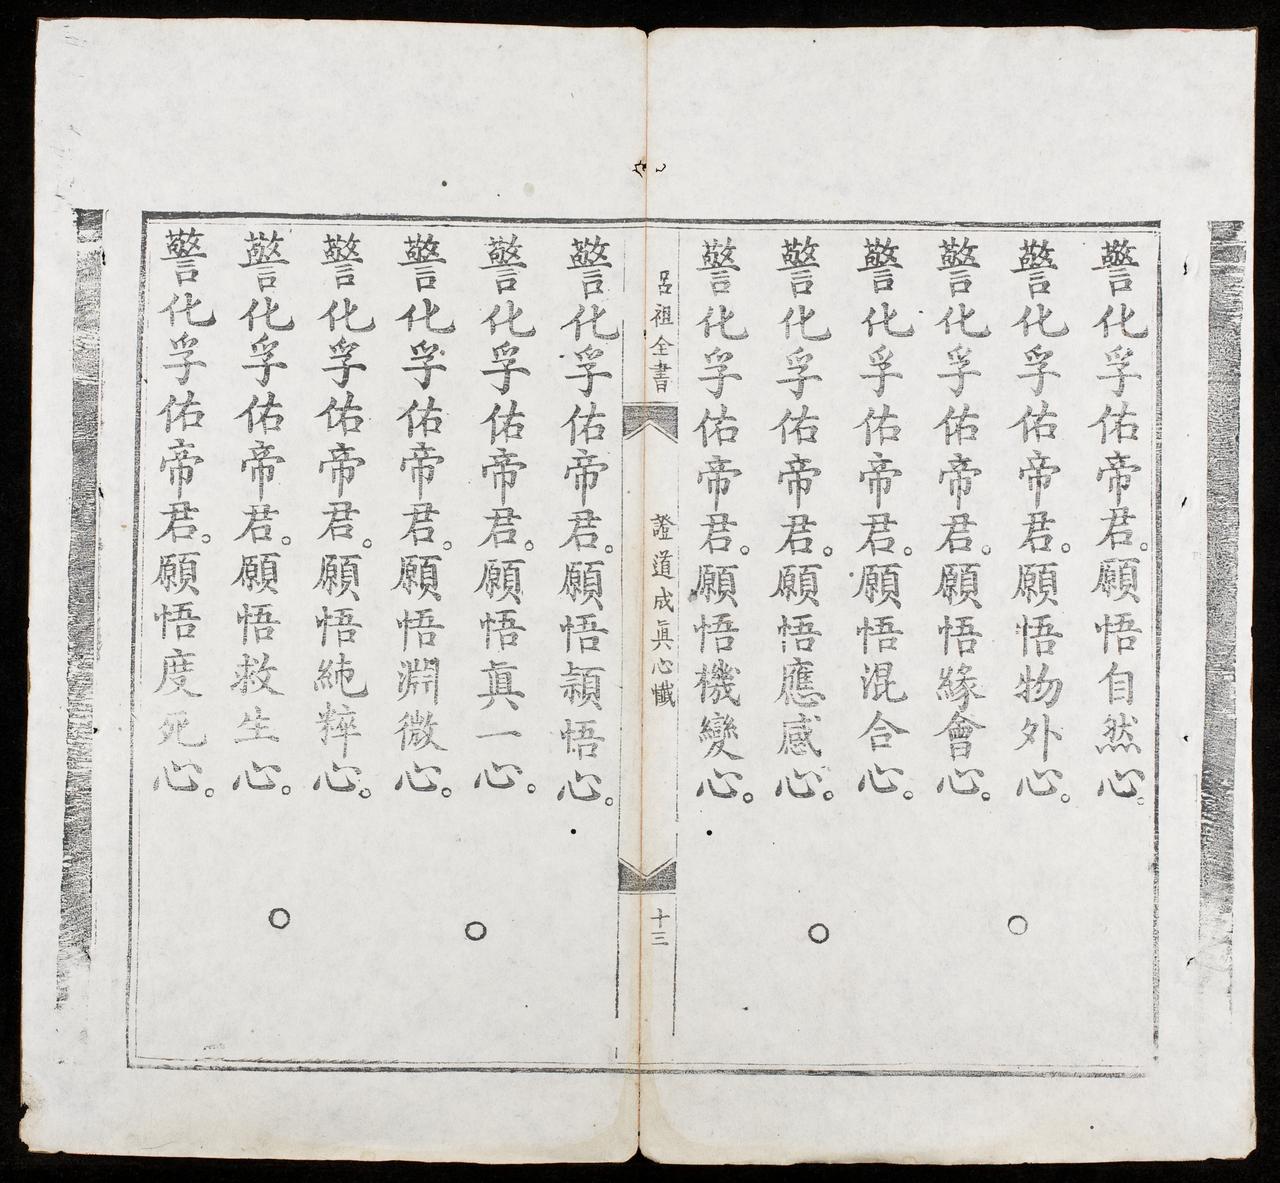 警化孚佑帝君。願悟自然心。
警化孚佑帝君。願悟物外心。
警化孚佑帝君。願悟緣會心。
警化孚佑帝君。願悟混合心。
警化孚佑帝君。願悟應感心。
警化孚佑帝君。願悟機變心。
呂祖全書
證道成眞心懺
十三
警化孚佑帝君。願悟頴悟心。
警化孚佑帝君。願悟眞一心。
警化孚佑帝君。願悟淵微心。
警化孚佑帝君。願悟純粹心。
警化孚佑帝君。願悟救生心。
警化孚佑帝君。願悟度死心。